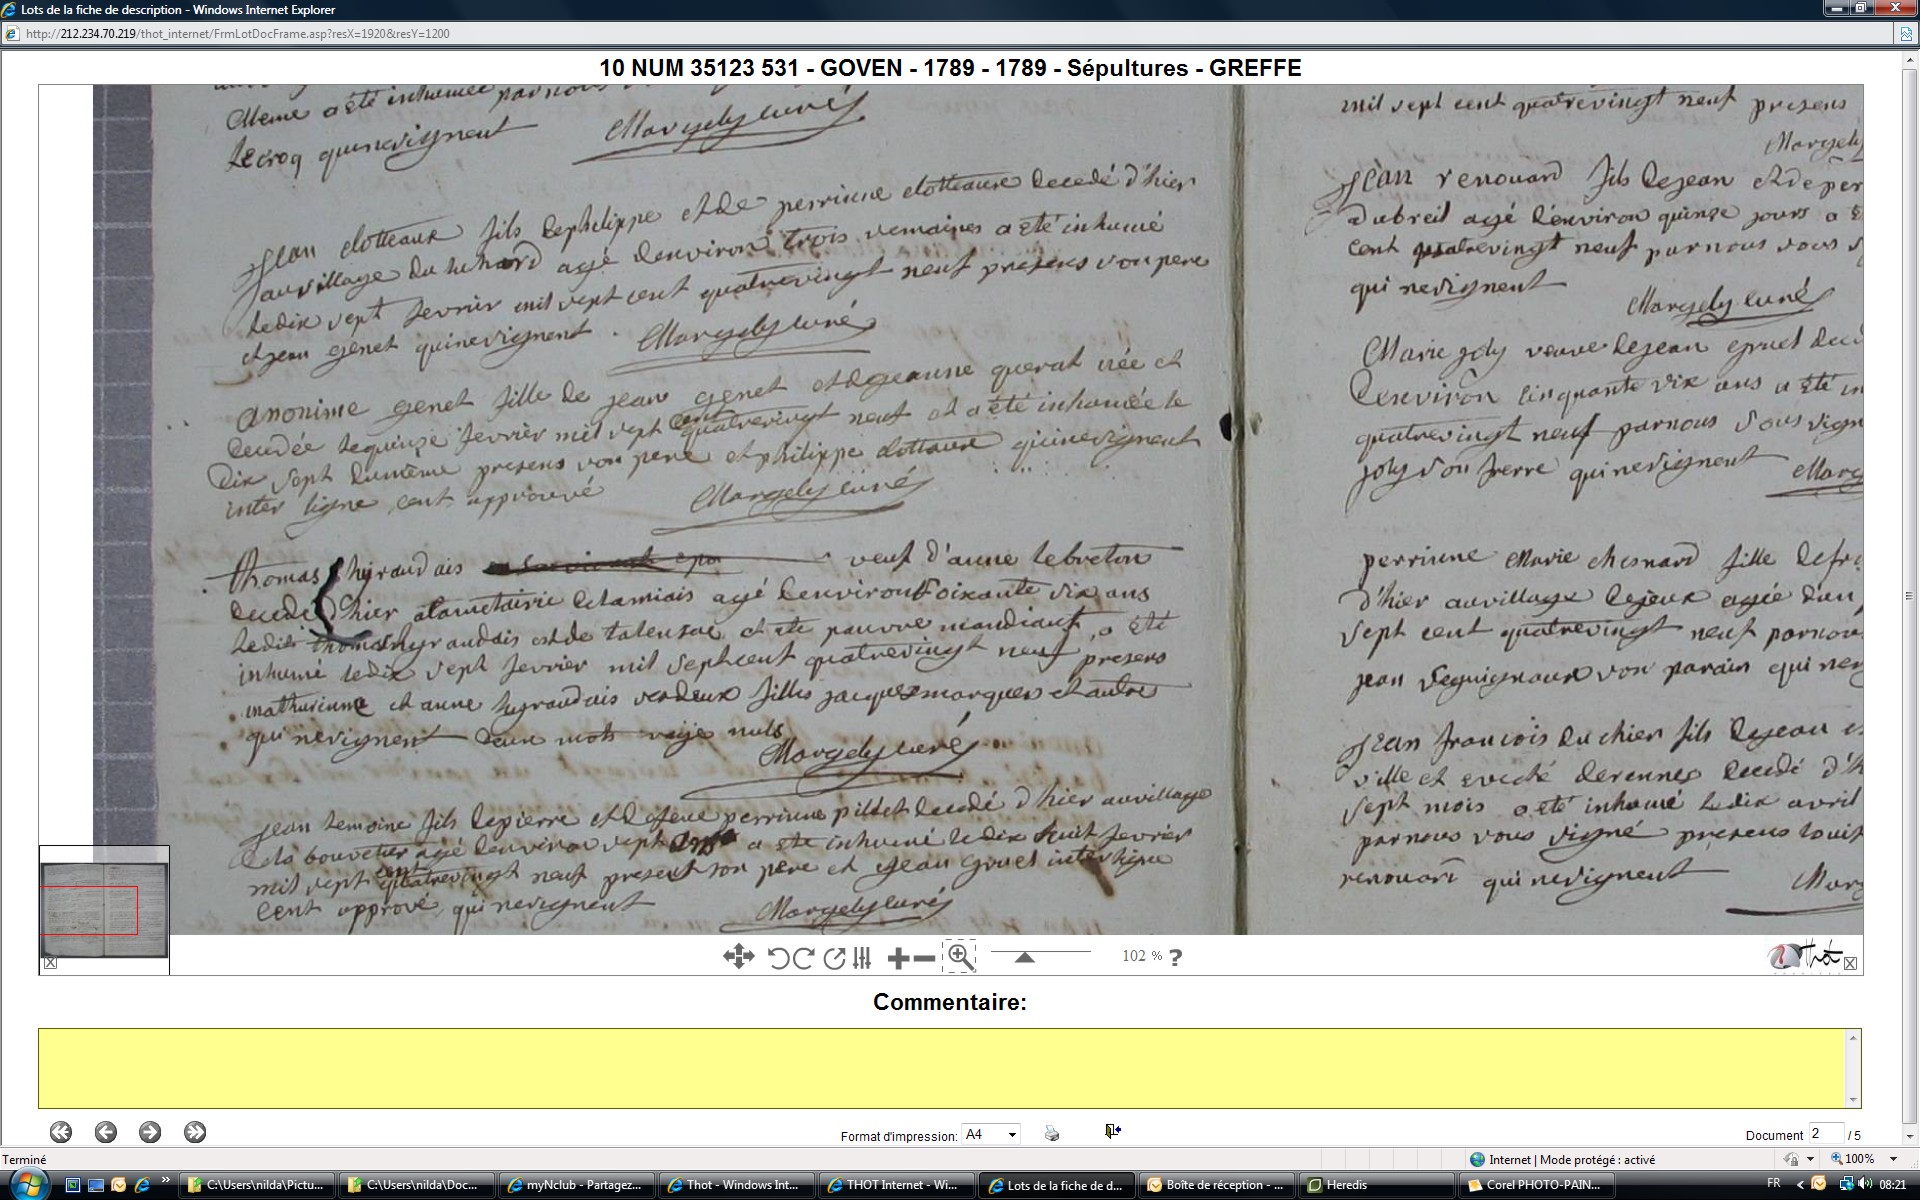 Lots de la fiche de description - Windows Internet Explorer
http://212.234.70.219/thot_internet/FrmLotDocFrame.asp?resX=1920&resY=1200
10 NUM 35123 531 - GOVEN - 1789 - 1789 - Sépultures - GREFFE
meme a été inhumée par nous
Lecroq qui ne signent Margely curé
Jean clotteaux fils de philippe et de perrinne clotteaux decedé d'hier
au village du agé d'environ trois semaines a été inhumé
le dix sept fevrier mil sept cent quatrevingt neuf presens son pere
et jean genet qui ne signent . Margely curé
anonime genet fille de jean genet et de jeanne querat née et
decedée le quinze fevrier mil sept cent quatrevingt neuf et a été inhumée le
dix sept du même presens son pere et philippe clottaux qui ne signent
inter ligne cent approuvé Margely curé
thomas hyraudais veuf d'anne lebreton
decedé d'hier a la metairie de lamiais agé d'environ soixante dix ans
ledit thomas hyraudais est de talensac et eté pauvre mandiant, a été
inhumé le dix sept fevrier mil sept cent quatrevingt neuf presens
mathurinne et anne hyraudais ses deux filles jacques marquer et autre
qui ne signent deux mots rayé nuls
Margely curé
jean lemoine fils de pierre et de feue perrinne pillet decedé d'hier au village
de la bouvetier agé d'environ sept ans a été inhumé le dix huit fevrier
mil sept cent quatrevingt neuf present son pere et jean gruel interligne
cent apprové qui ne signent Margely curé
mil sept cent quatrevingt neuf presens
Margely
jean renouard fils de jean et de per
dubreil agé d'environ quinze jours a é
cent quatrevingt neuf par nous sous s
qui ne signent
Margely curé
Marie joly veuve de jean gruel dec
d'environ cinquante six ans a été in
quatrevingt neuf par nous sous sign
joly son frere qui ne signent Marg
perrinne Marie chesnard fille de fr
d'hier au village agée d'un
sept cent quatrevingt neuf par nou
jean seguignaux son parain qui ne
jean francois duchier fils de jean e
ville et eveché de rennes decedé d'h
sept mois a été inhumé le dix avril
par nous sous signé presens louis
renouard qui ne signent Marg
102 % ?
Thot
Commentaire:
Format d'impression: A4
Document 2 / 5
Terminé
Internet | Mode protégé : activé
100%
C:\Users\nilda\Pictu...
C:\Users\nilda\Doc...
myNclub - Partagez...
Thot - Windows Int...
THOT Internet - Wi...
Lots de la fiche de d...
Boîte de réception - ...
Heredis
Corel PHOTO-PAIN...
FR
08:21